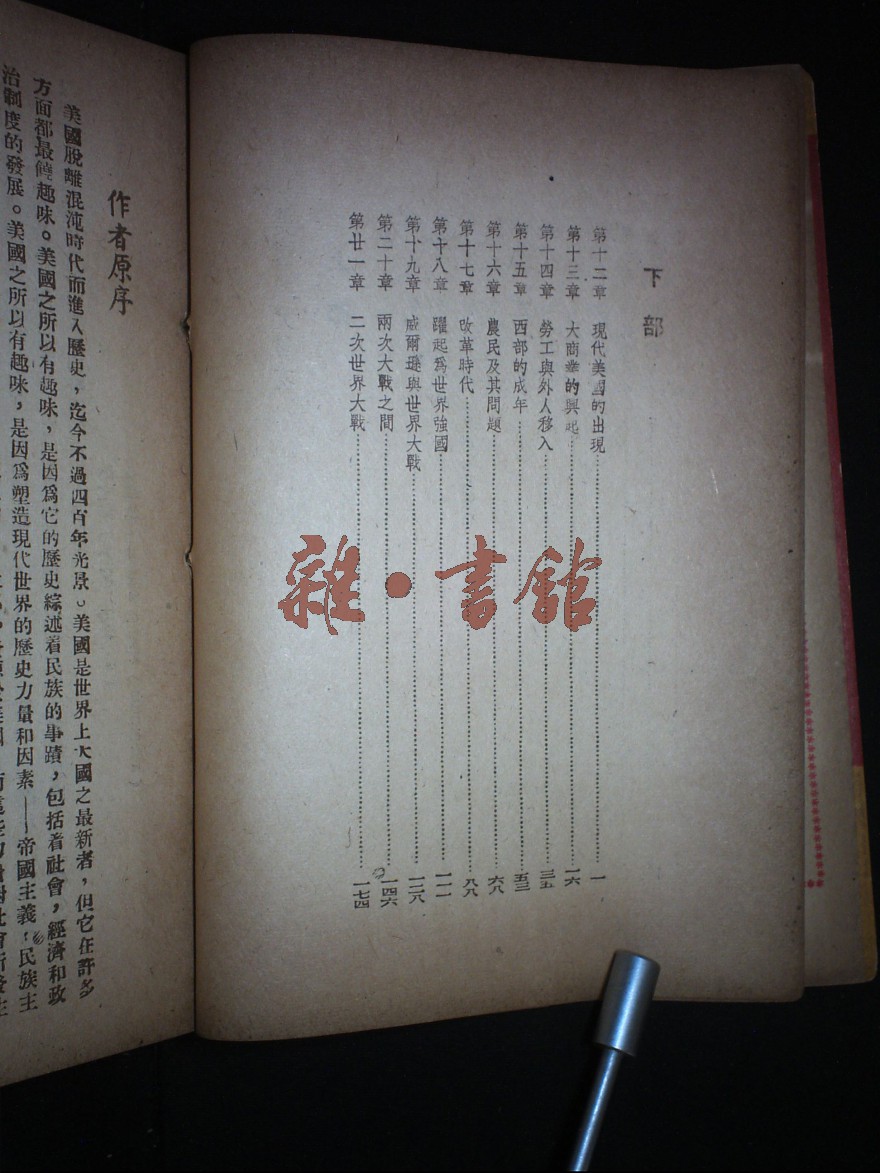 下部
第十二章 現代美國的出現 一
第十三章 大商業的興起 一六
第十四章 勞工與外人移入 三五
第十五章 西部的成年 五三
第十六章 農民及其問題 六八
第十七章 改革時代 八八
第十八章 躍起爲世界強國 一一一
第十九章 威爾遜與世界大戰 一二八
第二十章 兩次大戰之間 一四六
第廿一章 二次世界大戰 一七四
雜·書館
作者原序
美國脫離混沌時代而進入歷史，迄今不過四百年光景。美國是世界上大國之最新者，但它在許多
方面都最饒趣味。美國之所以有趣味，是因爲它的歷史綜述着民族的事蹟，包括着社會，經濟和政
治制度的發展。美國之所以有趣味，是因爲塑造現代世界的歷史力量和因素——帝國主義，民族主